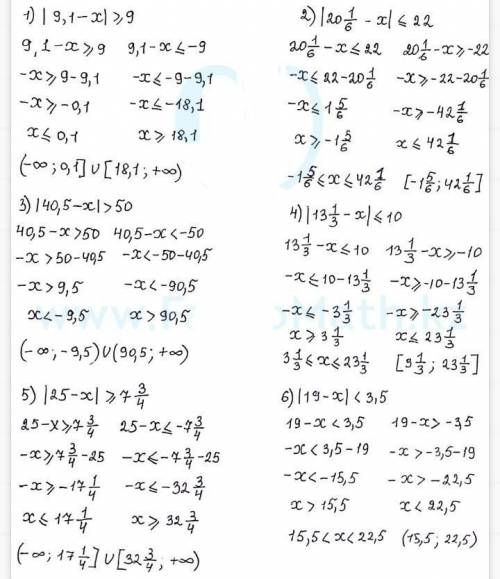 1) |9,1-x| ⩾ 9
9,1-x ⩾ 9   9,1-x ⩽ -9
-x ⩾ 9-9,1   -x ⩽ -9-9,1
-x ⩾ -0,1   -x ⩽ -18,1
x ⩽ 0,1   x ⩾ 18,1
(-∞; 0,1] ∪ [18,1; +∞)
2) |20 1/6 - x| ⩽ 22
20 1/6 - x ⩽ 22   20 1/6 - x ⩾ -22
-x ⩽ 22-20 1/6   -x ⩾ -22-20 1/6
-x ⩽ 1 5/6   -x ⩾ -42 1/6
x ⩾ -1 5/6   x ⩽ 42 1/6
-1 5/6 ⩽ x ⩽ 42 1/6   [-1 5/6; 42 1/6]
3) |40,5-x| > 50
40,5-x > 50   40,5-x < -50
-x > 50-40,5   -x < -50-40,5
-x > 9,5   -x < -90,5
x < -9,5   x > 90,5
(-∞; -9,5) ∪ (90,5; +∞)
4) |13 1/3 - x| ⩽ 10
13 1/3 - x ⩽ 10   13 1/3 - x ⩾ -10
-x ⩽ 10-13 1/3   -x ⩾ -10-13 1/3
-x ⩽ -3 1/3   -x ⩾ -23 1/3
x ⩾ 3 1/3   x ⩽ 23 1/3
3 1/3 ⩽ x ⩽ 23 1/3   [3 1/3; 23 1/3]
5) |25-x| ⩾ 7 3/4
25-x ⩾ 7 3/4   25-x ⩽ -7 3/4
-x ⩾ 7 3/4 - 25   -x ⩽ -7 3/4 - 25
-x ⩾ -17 1/4   -x ⩽ -32 3/4
x ⩽ 17 1/4   x ⩾ 32 3/4
(-∞; 17 1/4] ∪ [32 3/4; +∞)
6) |19-x| < 3,5
19-x < 3,5   19-x > -3,5
-x < 3,5-19   -x > -3,5-19
-x < -15,5   -x > -22,5
x > 15,5   x < 22,5
15,5 < x < 22,5   (15,5; 22,5)